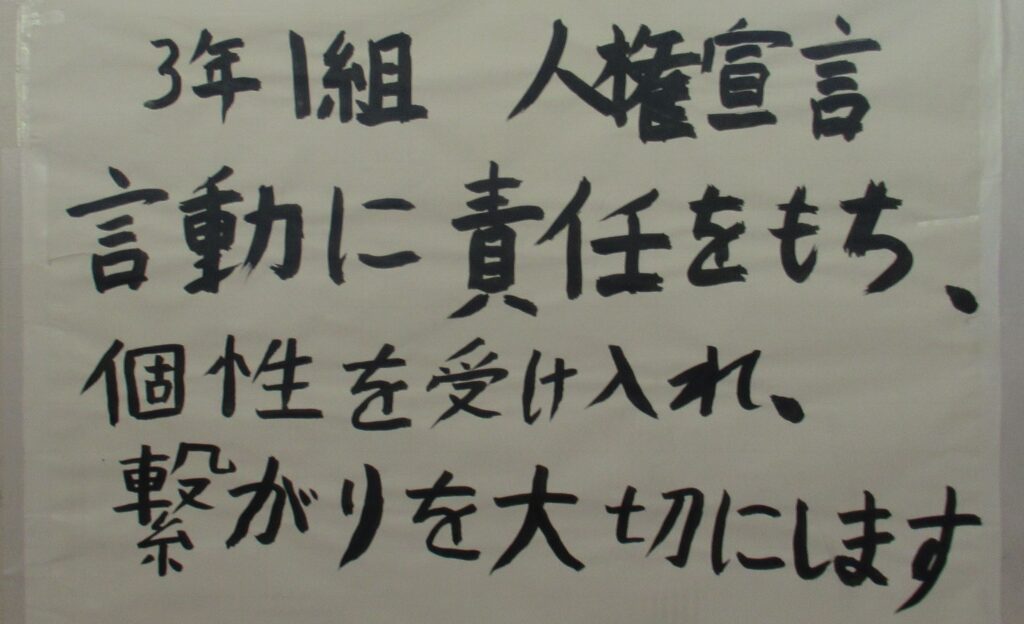 3年1組 人権宣言
言動に責任をもち、
個性を受け入れ、
繋がりを大切にします